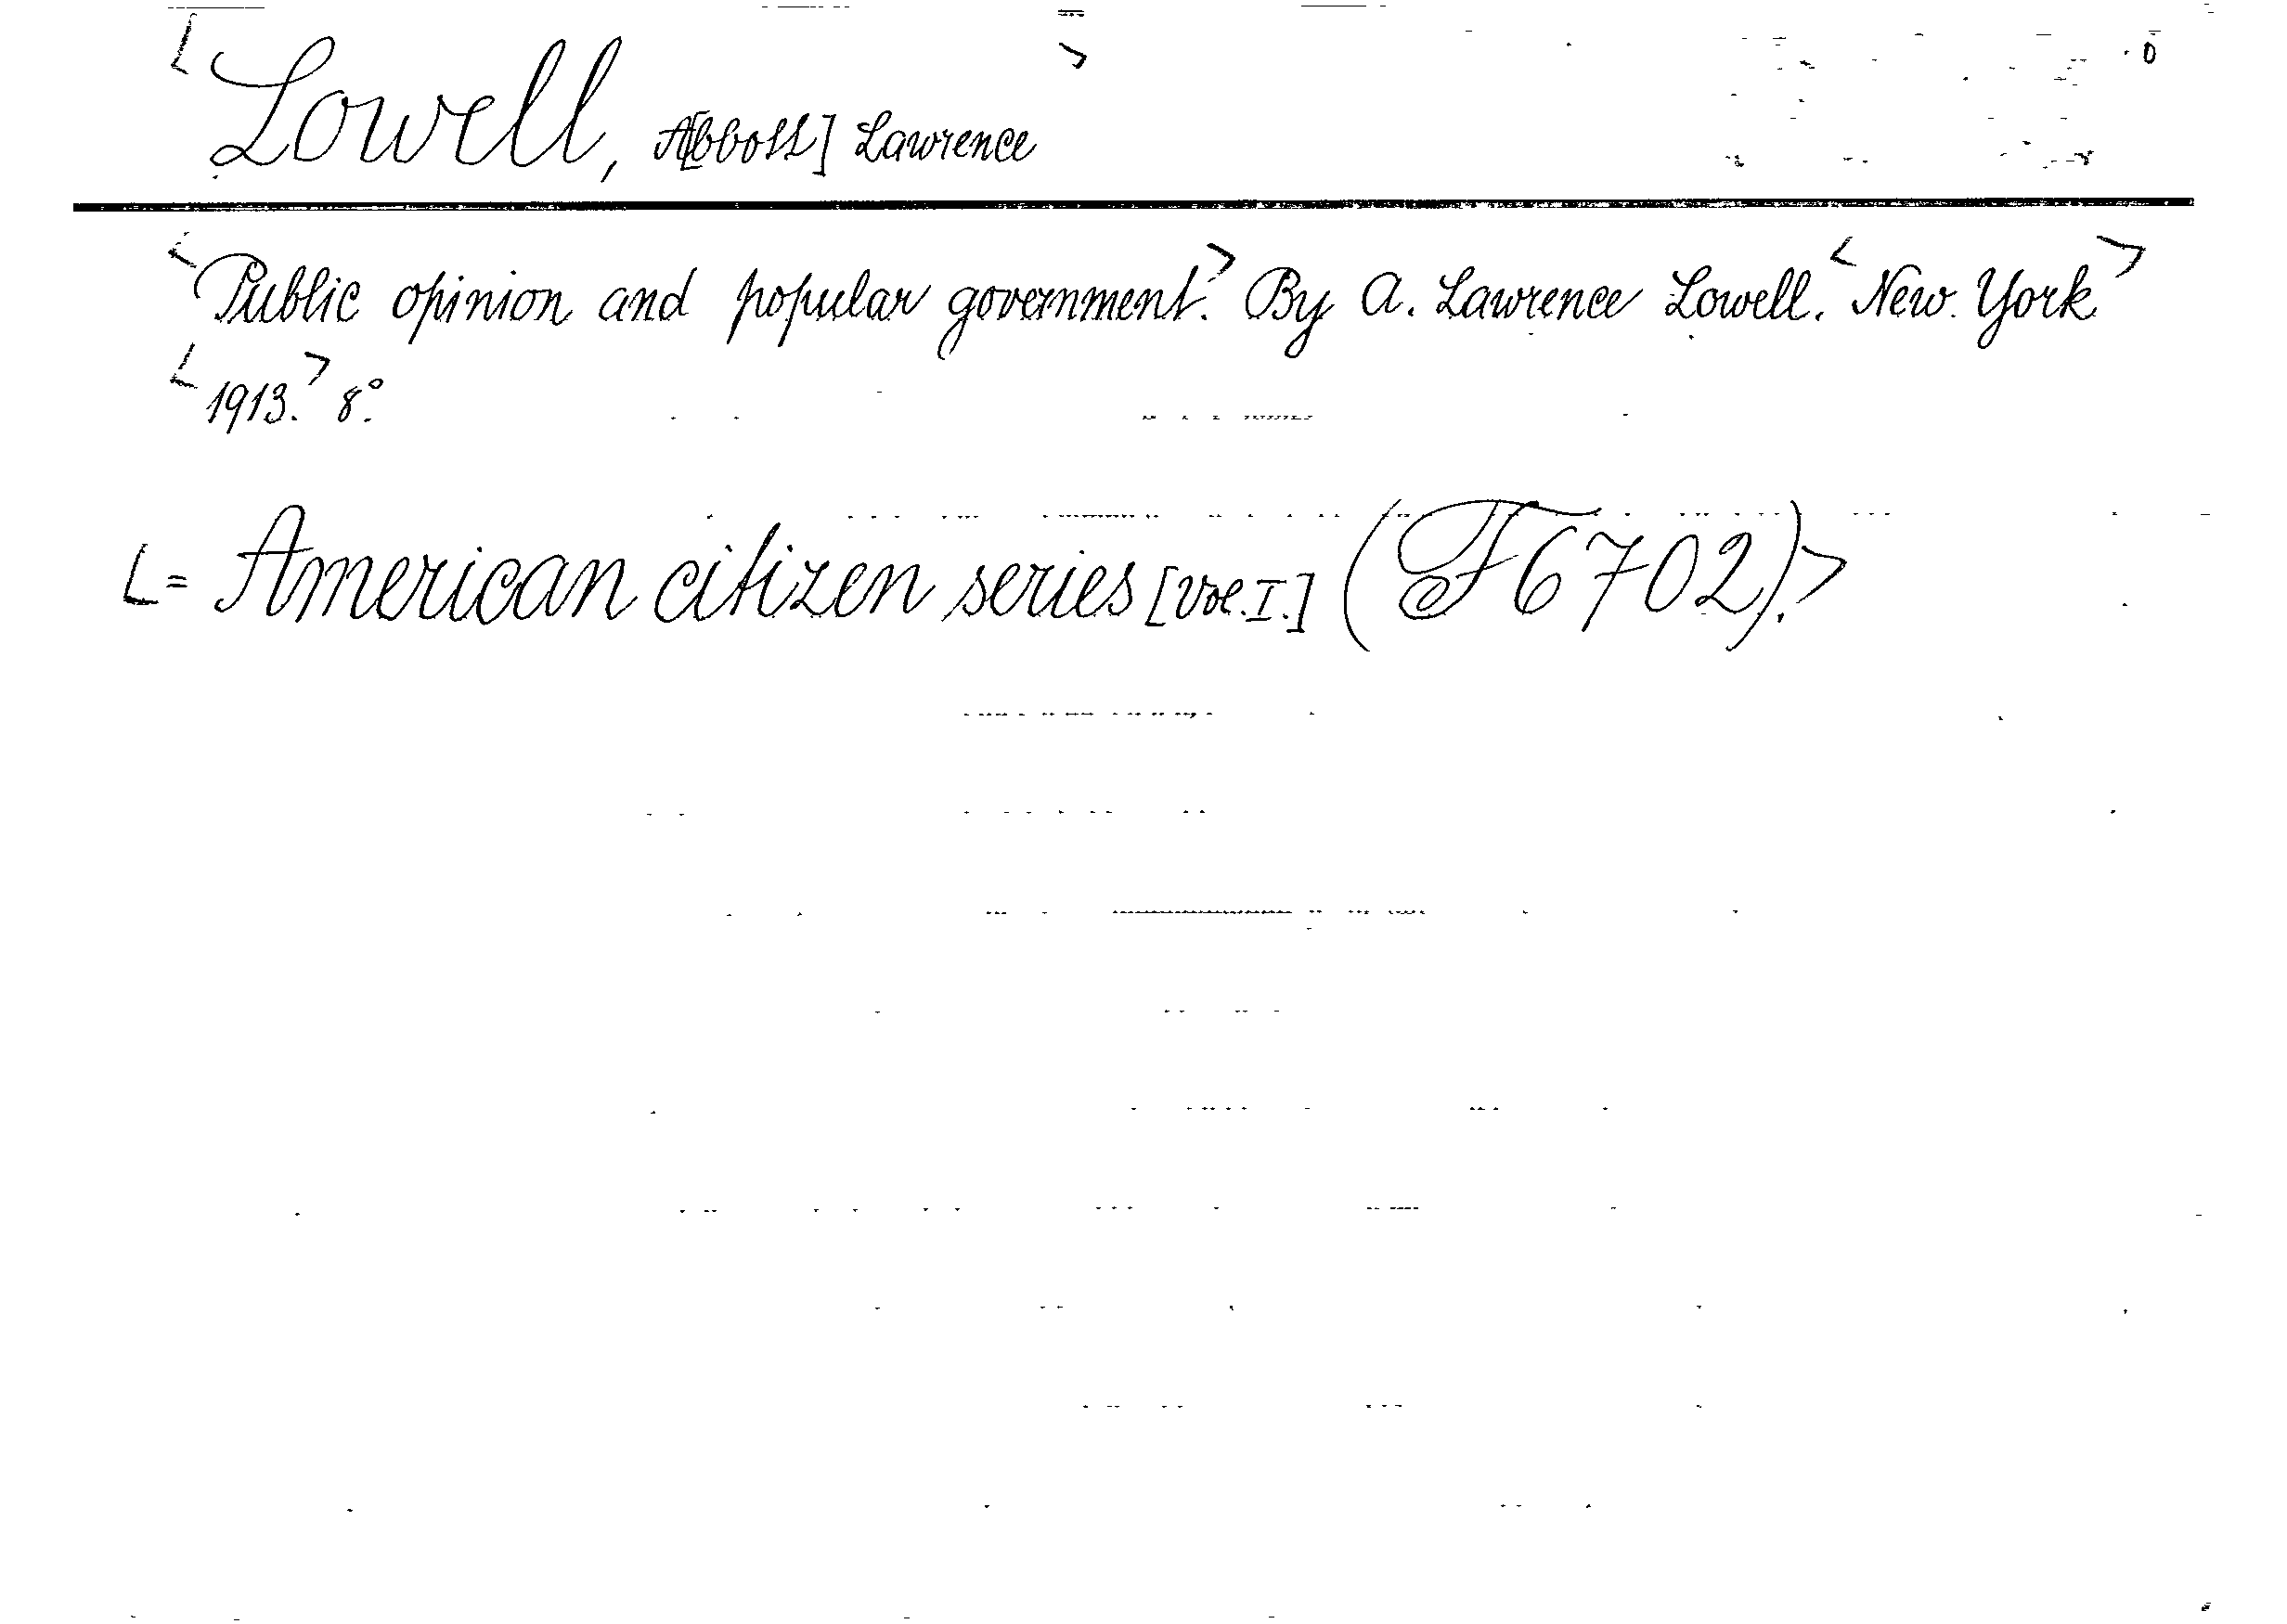 Lowell, A[bbott] Lawrence
Public opinion and popular government. By A. Lawrence Lowell. New York
1913. 8°.
= American citizen series [Vol. I.] (F 6702).